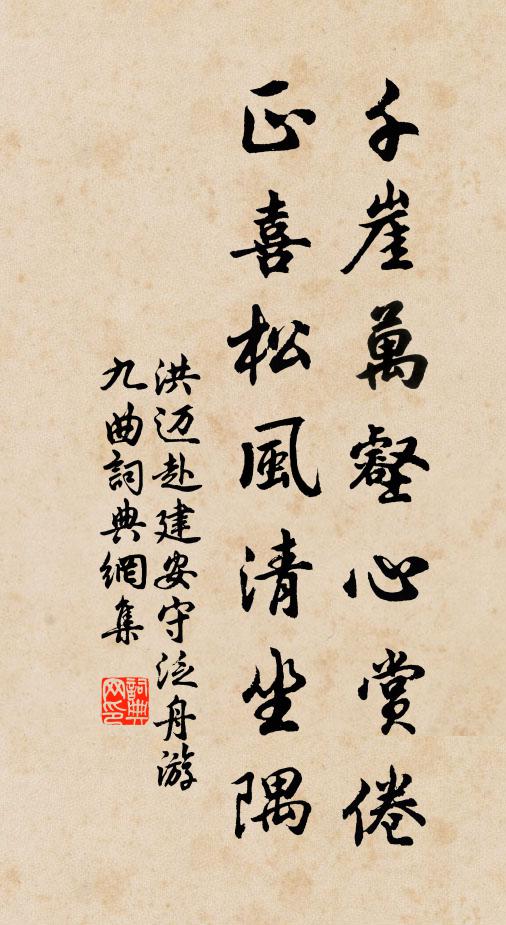 千崖萬壑心賞倦
正喜松風清坐隅
洪迈赴建安守泛舟游
九曲詞典網集
詞典
网印